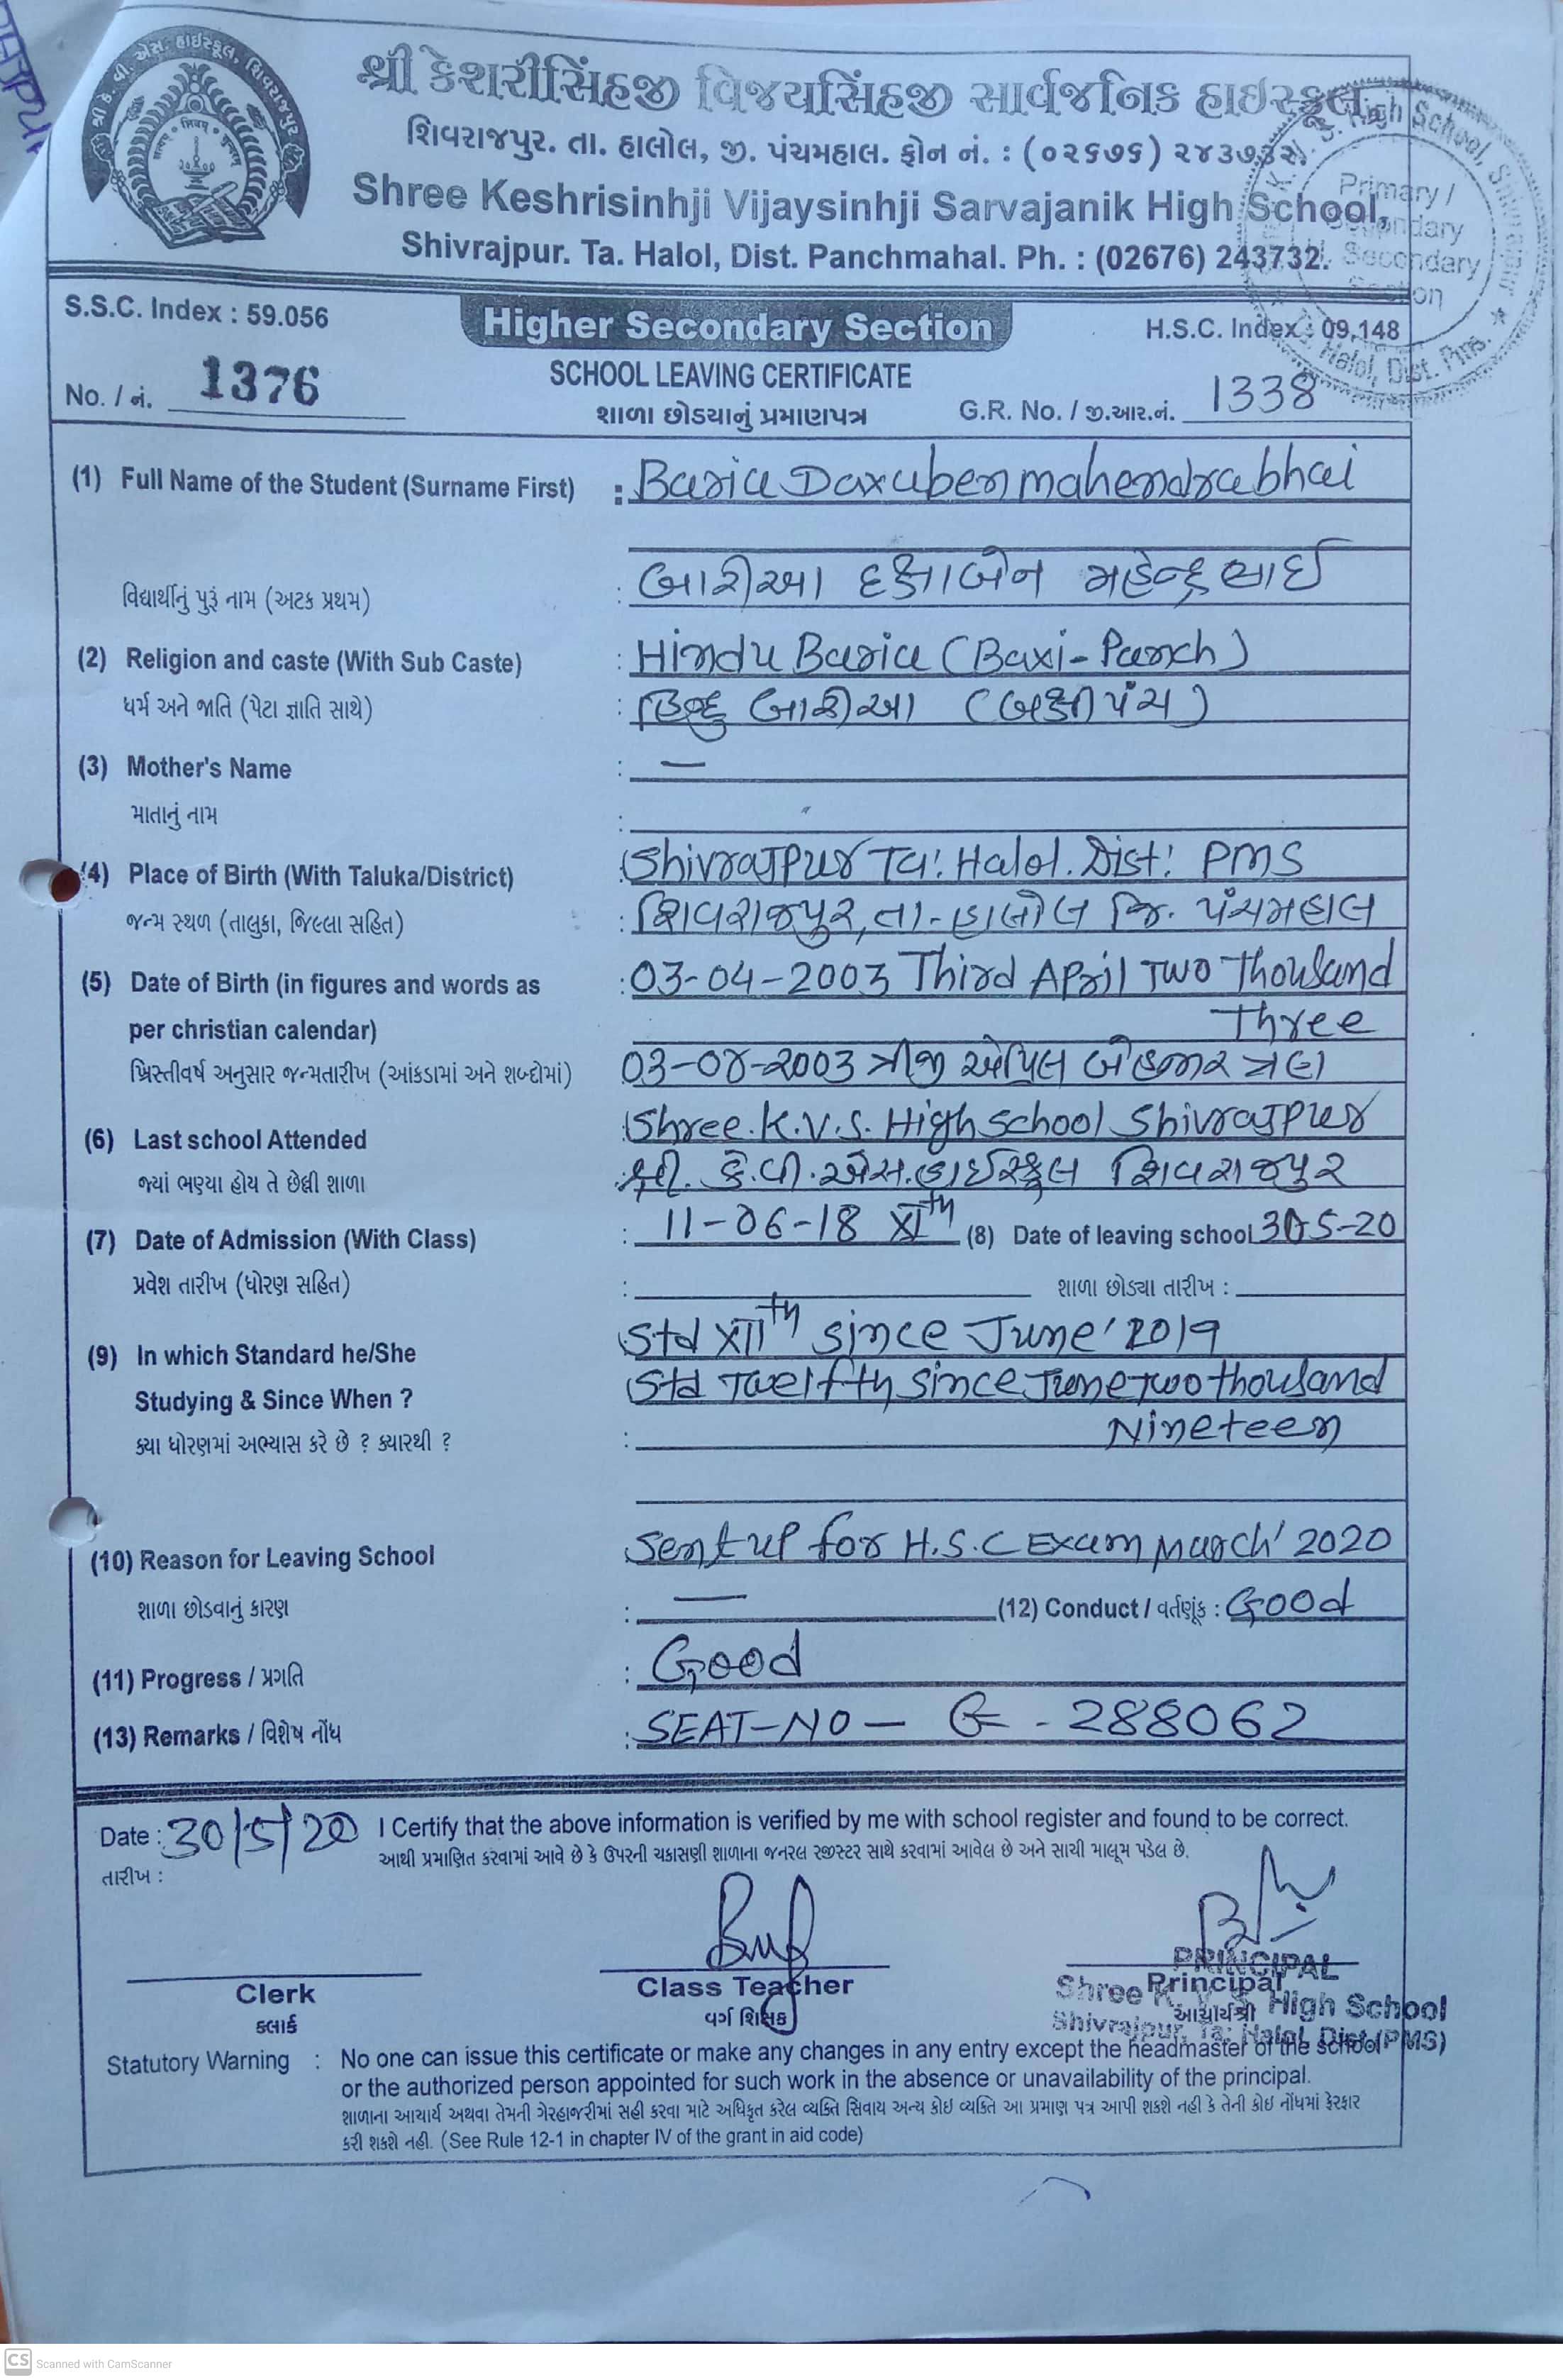 શ્રી કે. વી. એસ. હાઇસ્કૂલ, શિવરાજપુર
શ્રી કેશરીસિંહજી વિજયસિંહજી સાર્વજનિક હાઇસ્કૂલ,
શિવરાજપુર. તા. હાલોલ, જી. પંચમહાલ. ફોન નં. : (૦૨૬૭૬) ૨૪૩૭૩૨.
Shree Keshrisinhji Vijaysinhji Sarvajanik High School,
Shivrajpur. Ta. Halol, Dist. Panchmahal. Ph. : (02676) 243732.
S.S.C. Index : 59.056
Higher Secondary Section
H.S.C. Index : 09.148
No. / નં. 1376
SCHOOL LEAVING CERTIFICATE
શાળા છોડયાનું પ્રમાણપત્ર
G.R. No. / જી.આર.નં. 1338
(1) Full Name of the Student (Surname First) : Baria Daxaben mahendrabhai
વિદ્યાર્થીનું પુરૂં નામ (અટક પ્રથમ) : બારીઆ દક્ષાબેન મહેન્દ્રભાઈ
(2) Religion and caste (With Sub Caste) : Hindu Baria (Baxi-Panch)
ધર્મ અને જાતિ (પેટા જ્ઞાતિ સાથે) : હિન્દુ બારીઆ (બક્ષીપંચ)
(3) Mother's Name : —
માતાનું નામ :
(4) Place of Birth (With Taluka/District) : Shivrajpur Ta: Halol. Dist: PMS
જન્મ સ્થળ (તાલુકા, જિલ્લા સહિત) : શિવરાજપુર, તા-હાલોલ જિ. પંચમહાલ
(5) Date of Birth (in figures and words as : 03-04-2003 Third April Two Thousand
per christian calendar) Three
ખ્રિસ્તીવર્ષ અનુસાર જન્મતારીખ (આંકડામાં અને શબ્દોમાં) 03-૦૪-૨૦૦૩ ત્રીજી એપ્રિલ બેહજાર ત્રણ
(6) Last school Attended : Shree. K.V.S. High school Shivrajpur
જ્યાં ભણ્યા હોય તે છેલ્લી શાળા : શ્રી. કે.વી.એસ.હાઈસ્કુલ શિવરાજપુર
(7) Date of Admission (With Class) : 11-06-18 XIth (8) Date of leaving school 30-5-20
પ્રવેશ તારીખ (ધોરણ સહિત) : શાળા છોડ્યા તારીખ :
(9) In which Standard he/She : Std XIIth since June' 2019
Studying & Since When ? Std Twelfth since June two thousand
ક્યા ધોરણમાં અભ્યાસ કરે છે ? ક્યારથી ? : Nineteen
(10) Reason for Leaving School Sent up for H.S.C Exam March' 2020
શાળા છોડવાનું કારણ : — (12) Conduct / વર્તણૂંક : Good
(11) Progress / પ્રગતિ : Good
(13) Remarks / વિશેષ નોંધ : SEAT-NO - G - 288062
Date : 30/5/20 I Certify that the above information is verified by me with school register and found to be correct.
તારીખ : આથી પ્રમાણિત કરવામાં આવે છે કે ઉપરની ચકાસણી શાળાના જનરલ રજીસ્ટર સાથે કરવામાં આવેલ છે અને સાચી માલૂમ પડેલ છે.
PRINCIPAL
Clerk Class Teacher Principal
કલાર્ક વર્ગ શિક્ષક આચાર્યશ્રી
Shree K. V. S. High School
Shivrajpur, Ta: Halol, Dist (PMS)
Statutory Warning : No one can issue this certificate or make any changes in any entry except the headmaster of the school
or the authorized person appointed for such work in the absence or unavailability of the principal.
શાળાના આચાર્ય અથવા તેમની ગેરહાજરીમાં સહી કરવા માટે અધિકૃત કરેલ વ્યક્તિ સિવાય અન્ય કોઇ વ્યક્તિ આ પ્રમાણ પત્ર આપી શકશે નહી કે તેની કોઇ નોંધમાં ફેરફાર
કરી શકશે નહી. (See Rule 12-1 in chapter IV of the grant in aid code)
K. V. S. High School, Shivrajpur
Primary /
Secondary
H. Secondary
Section
Halol, Dist. Pms.
CS Scanned with CamScanner